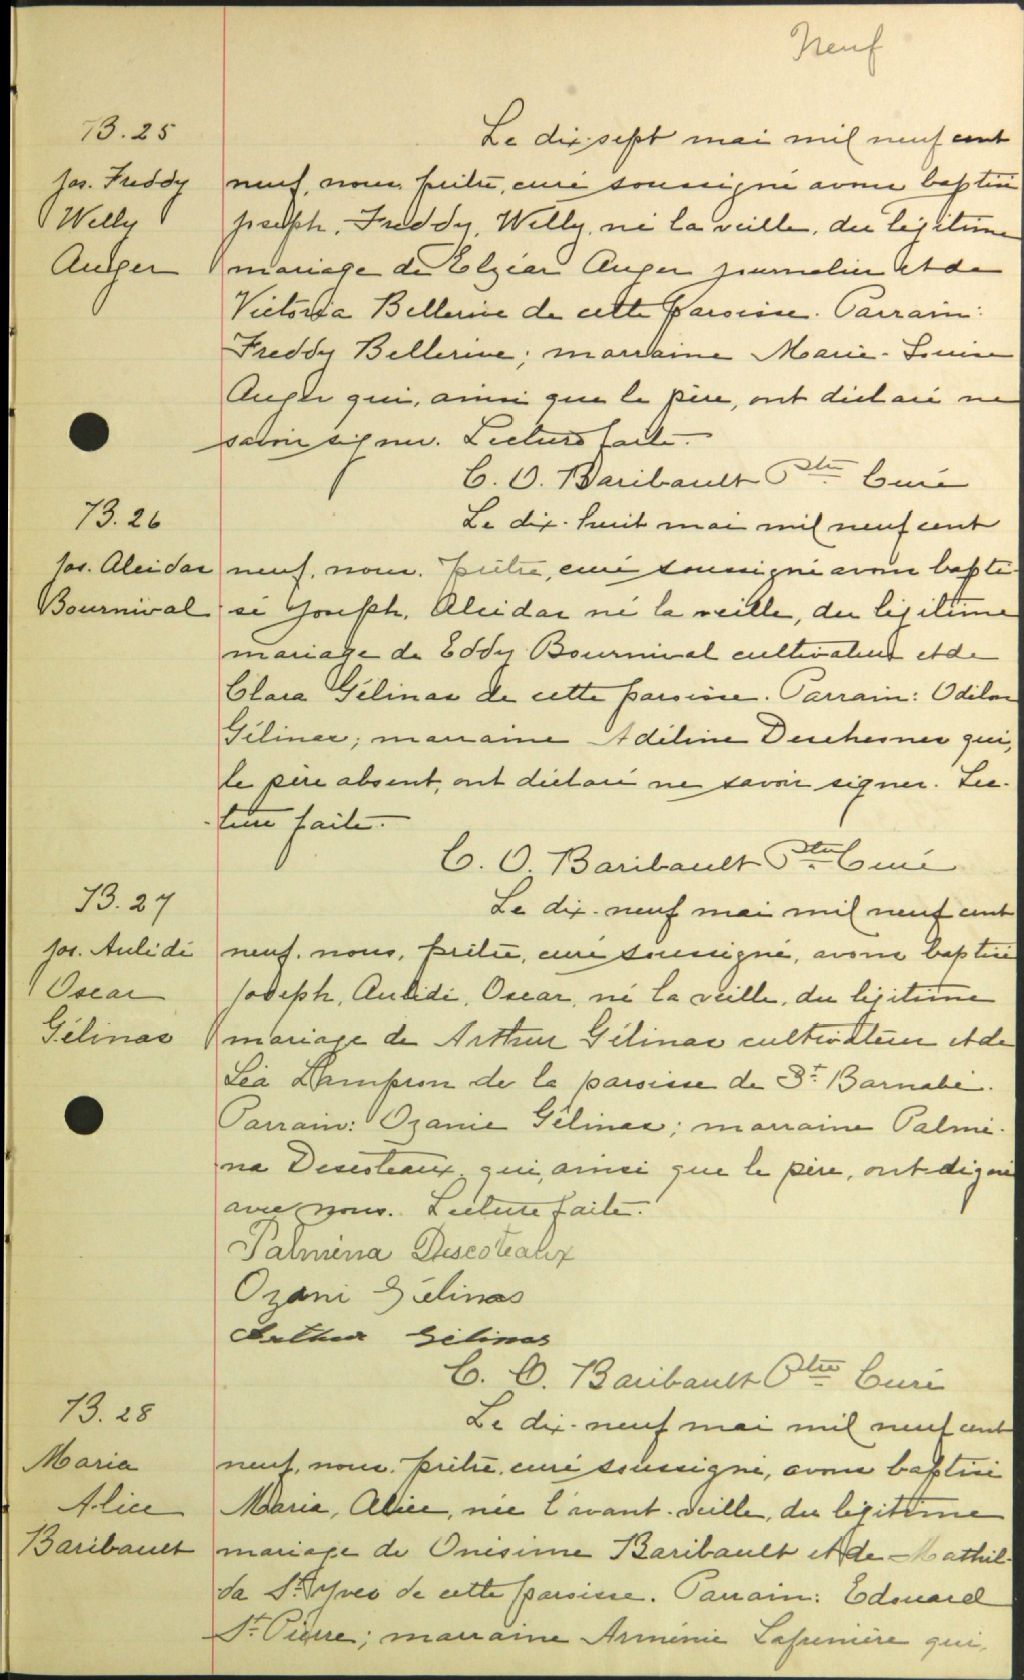 Neuf
B. 25
Jos. Freddy
Welly
Auger
Le dix-sept mai mil neuf cent
neuf, nous, prêtre, curé soussigné avons baptisé
Joseph, Freddy, Welly, né la veille, du légitime
mariage de Elzéar Auger journalier et de
Victoria Bellerive de cette paroisse. Parrain:
Freddy Bellerive; marraine Marie-Louise
Auger qui, ainsi que le père, ont déclaré ne
savoir signer. Lecture faite.
C. O. Baribault Ptre Curé
B. 26
Jos. Alcidas
Bournival
Le dix-huit mai mil neuf cent
neuf, nous, prêtre, curé soussigné avons bapti-
sé Joseph, Alcidas né la veille, du légitime
mariage de Eddy Bournival cultivateur et de
Clara Gélinas de cette paroisse. Parrain: Odilon
Gélinas; marraine Adéline Deschesnes qui,
le père absent, ont déclaré ne savoir signer. Lec-
ture faite.
C. O. Baribault Ptre Curé
B. 27
Jos. Aulidé
Oscar
Gélinas
Le dix-neuf mai mil neuf cent
neuf, nous, prêtre, curé soussigné, avons baptisé
Joseph, Aulidé, Oscar, né la veille, du légitime
mariage de Arthur Gélinas cultivateur et de
Léa Lampron de la paroisse de St. Barnabé.
Parrain: Ozanie Gélinas; marraine Palmé-
na Descoteaux, qui, ainsi que le père, ont signé
avec nous. Lecture faite.
Palména Descoteaux
Ozani Gélinas
Arthur Gélinas
C. O. Baribault Ptre Curé
B. 28
Maria
Alice
Baribault
Le dix-neuf mai mil neuf cent
neuf, nous, prêtre, curé soussigné, avons baptisé
Maria, Alice, née l'avant-veille, du légitime
mariage de Onésime Baribault et de Mathil-
da St. Yves de cette paroisse. Parrain: Edouard
St. Pierre; marraine Arménie Lafrenière qui,